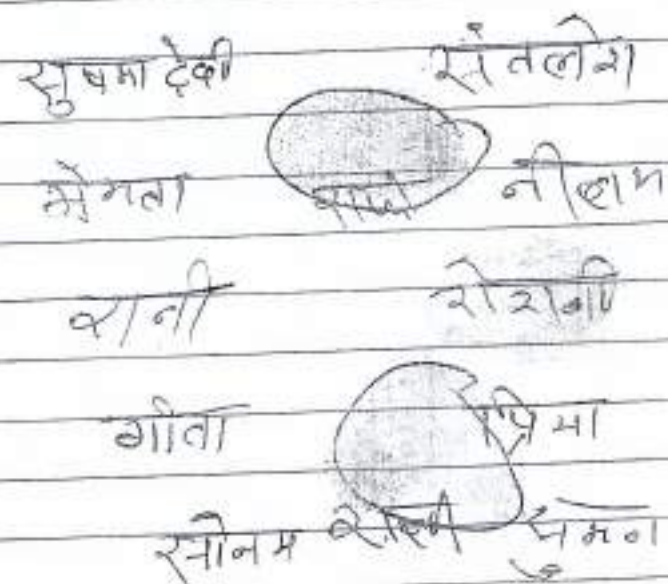 सुषमा देवी संतलेश
मेमता नीलम
रानी रोशनी
गीता प्रिया
सोनम सुमन